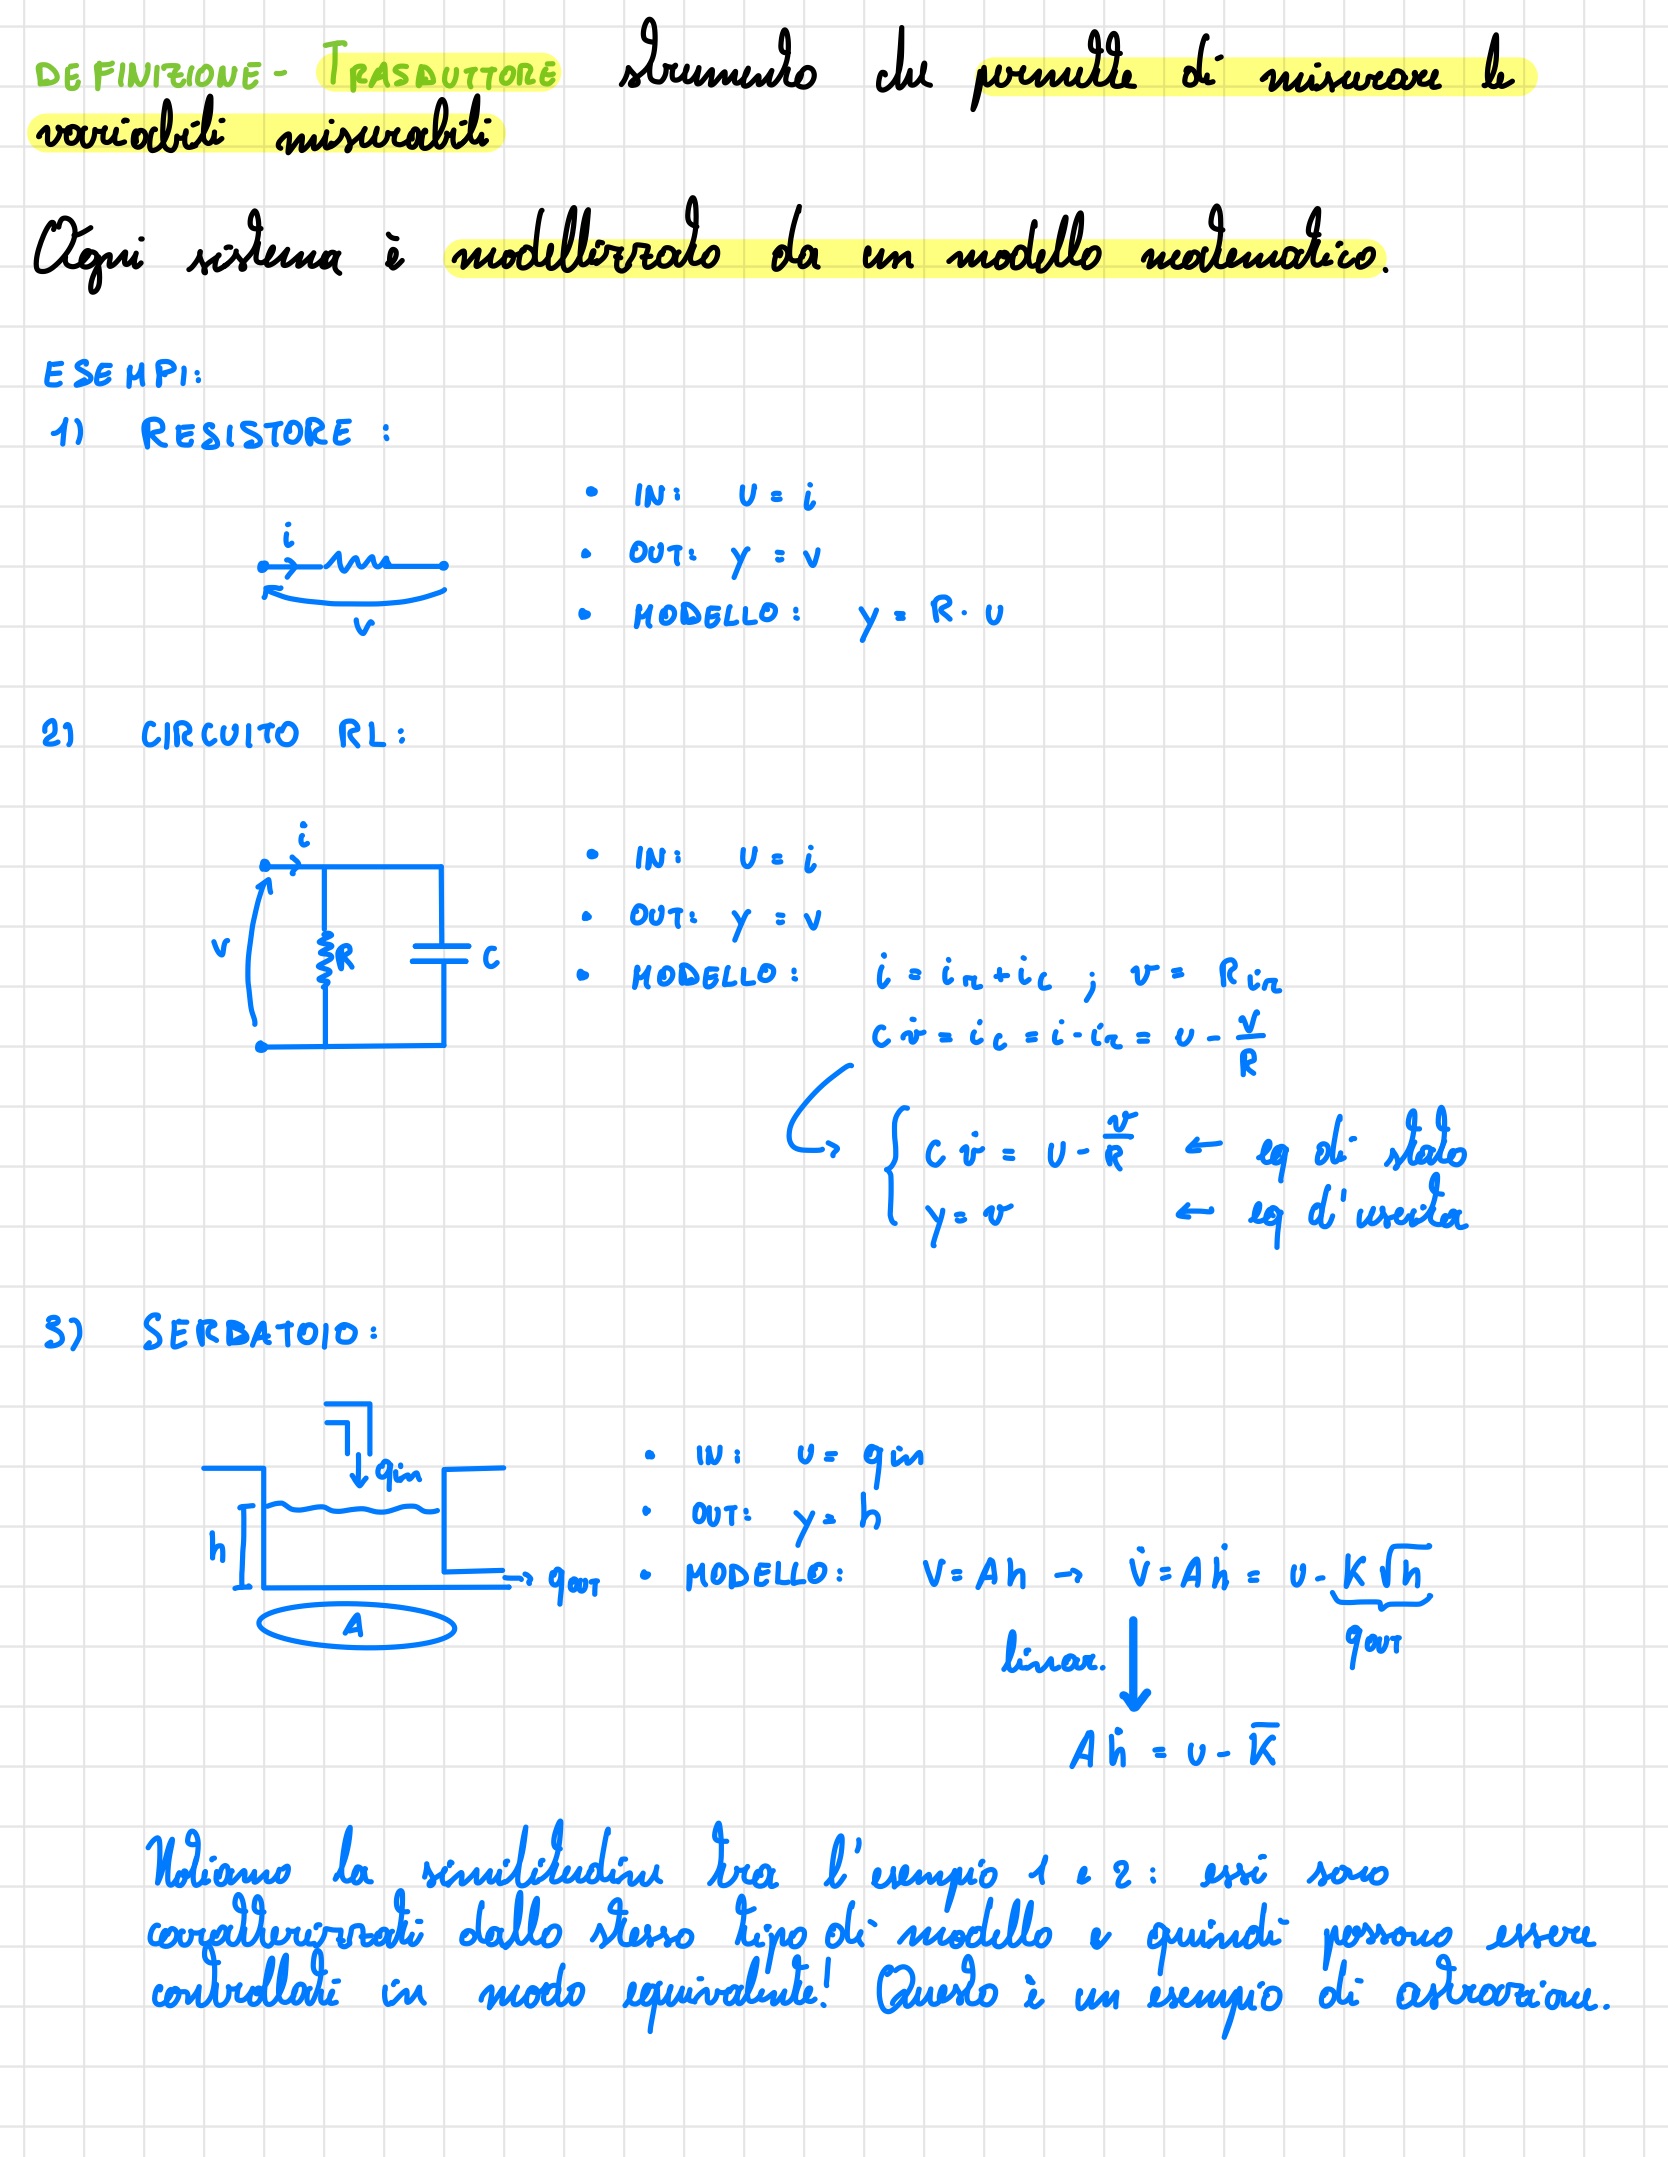 DEFINIZIONE - TRASDUTTORE strumento che permette di misurare le
variabili misurabili
Ogni sistema è modellizzato da un modello matematico.
ESEMPI:
1) RESISTORE :
• IN: U = i
i
• OUT: y = v
• MODELLO: y = R · U
v
2) CIRCUITO RL:
i
• IN: U = i
• OUT: y = v
v R C
• MODELLO: i = i_r + i_c ; v = R i_r
C v̇ = i_c = i - i_r = U - V/R
{ C v̇ = U - v/R ← eq di stato
y = v ← eq d'uscita
3) SERBATOIO:
q_in
• IN: U = q_in
• OUT: y = h
h
→ q_OUT
• MODELLO: V = Ah → V̇ = Aḣ = U - K √h
q_OUT
A
linear.
Aḣ = U - K̅
Notiamo la similitudine tra l'esempio 1 e 2 : essi sono
caratterizzati dallo stesso tipo di modello e quindi possono essere
controllati in modo equivalente! Questo è un esempio di astrazione.